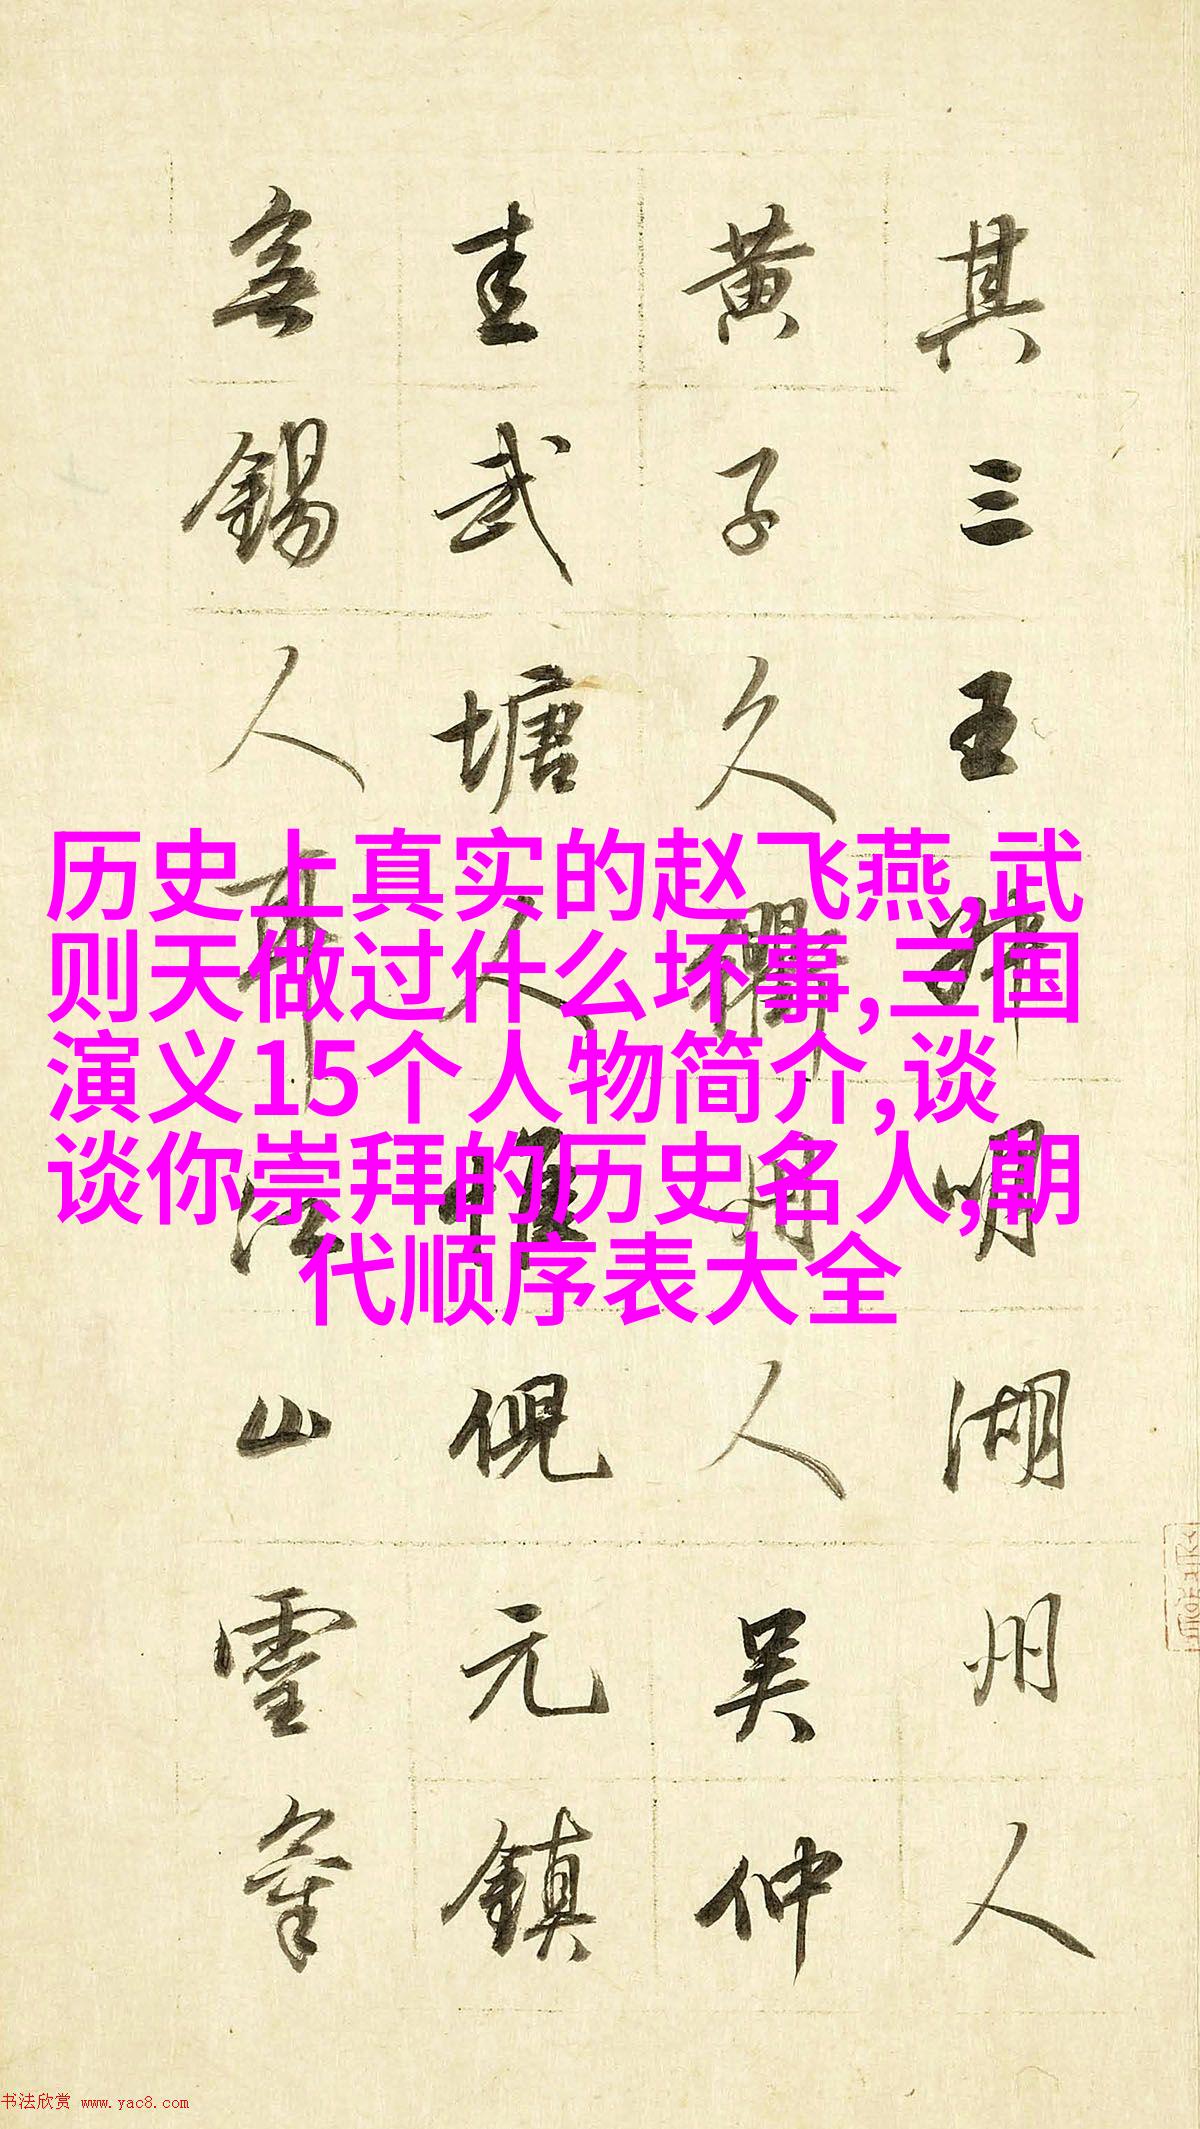 其三王叔明湖州人
黃子久衢州人吳仲
圭武塘人惟倪元鎮
無錫人耳江山靈氣
历史上真实的赵飞燕,武
则天做过什么坏事,三国
演义15个人物简介,谈
谈你崇拜的历史名人,朝
代顺序表大全
书法欣赏 www.yac8.com